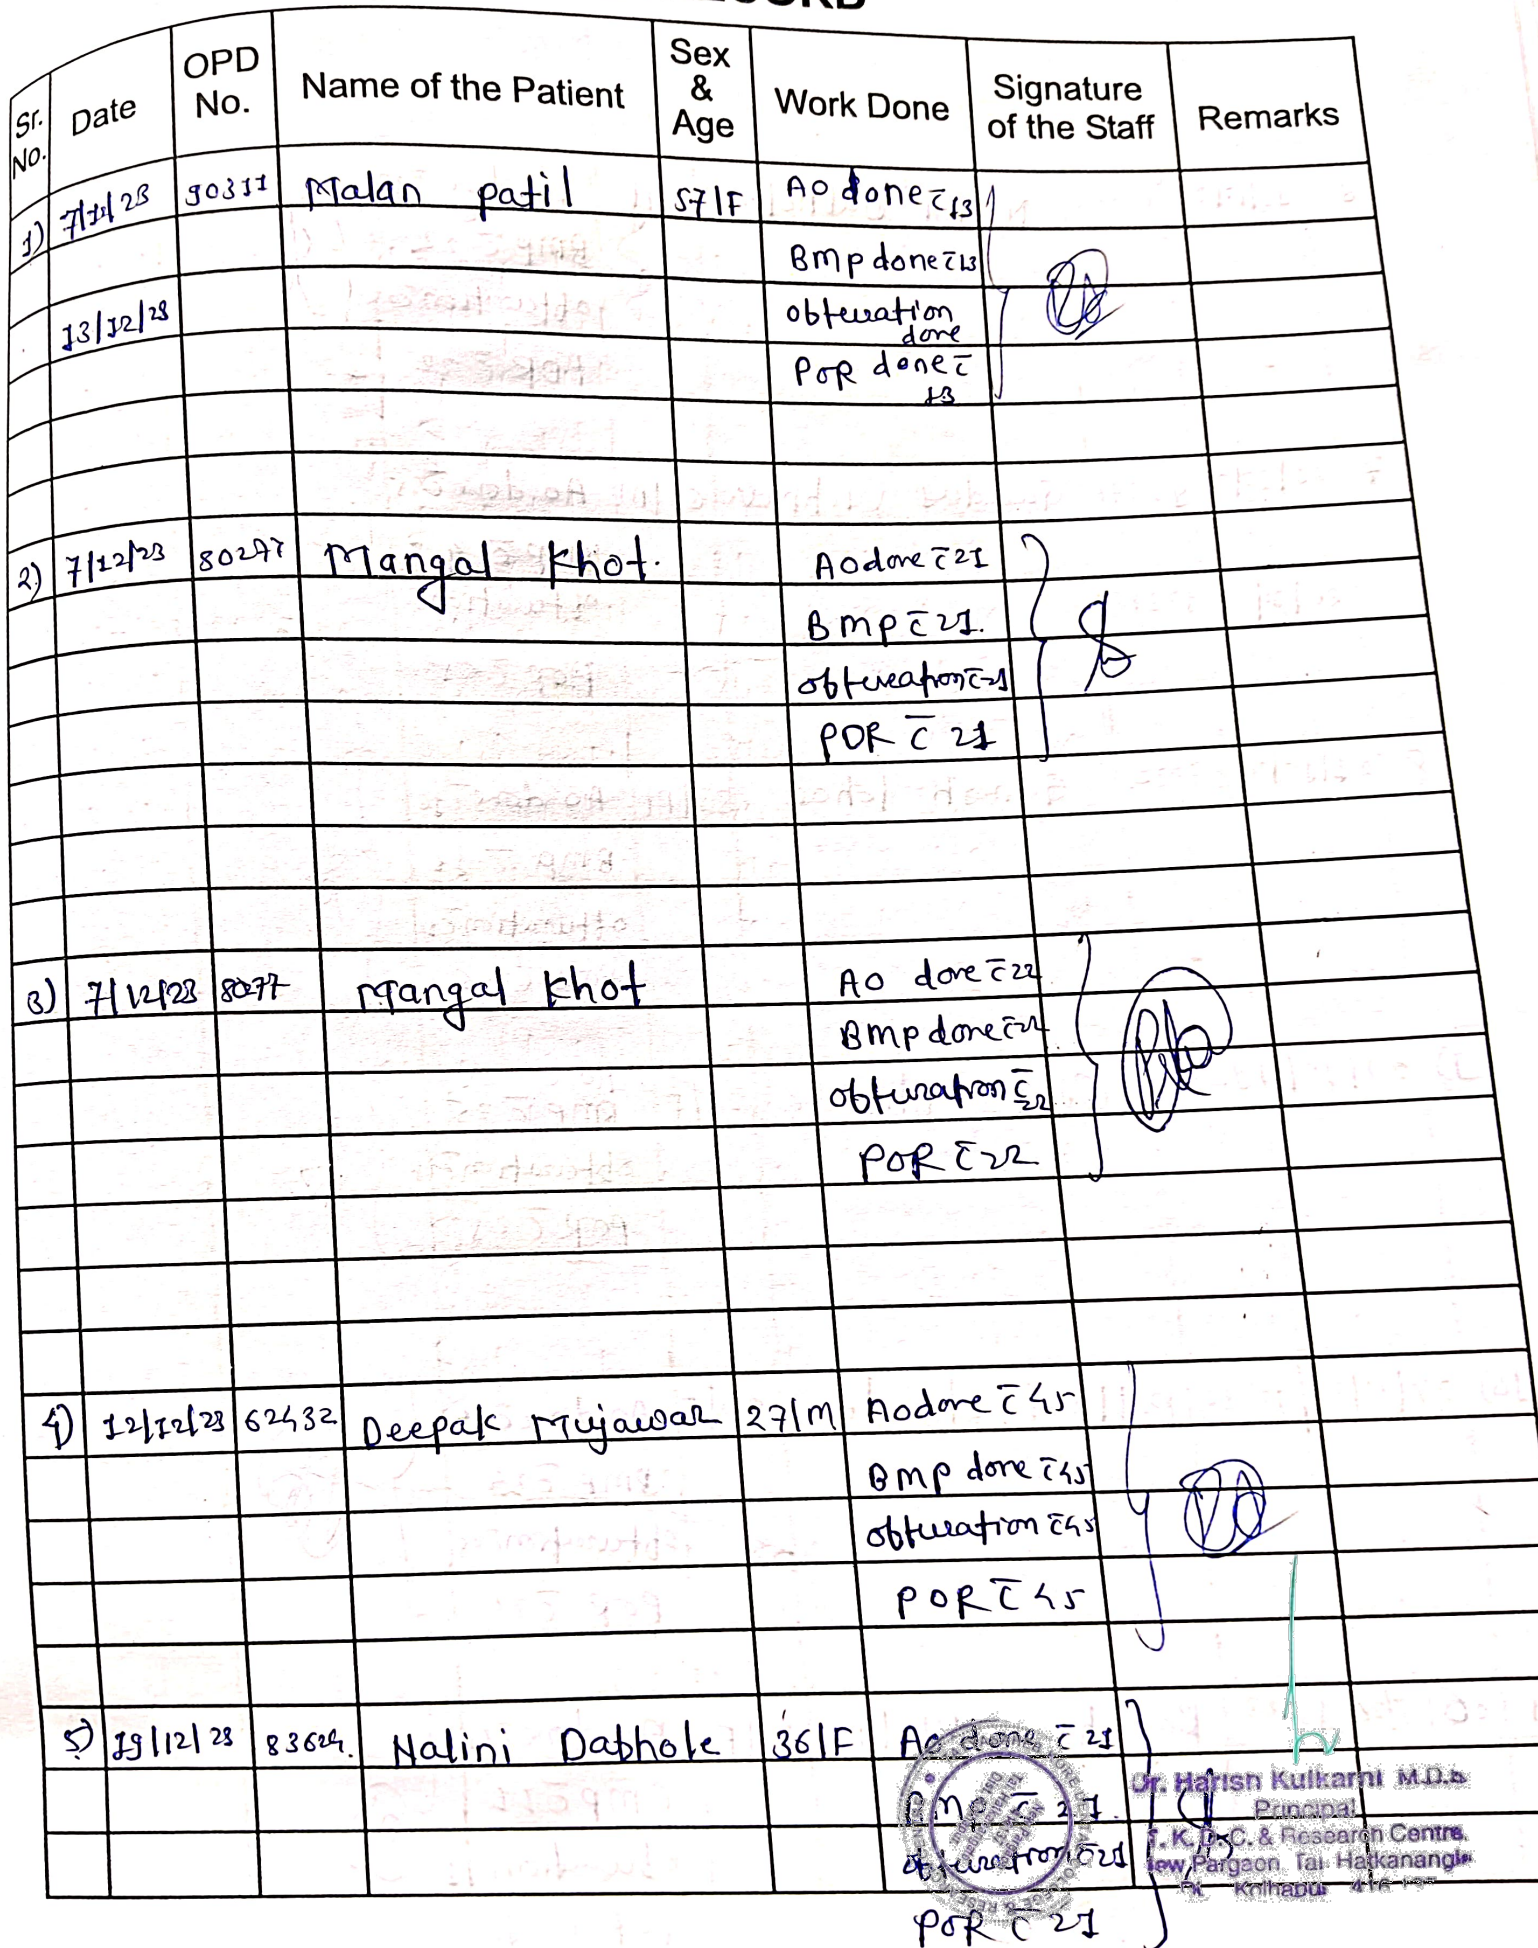 Sr. No. Date OPD No. Name of the Patient Sex & Age Work Done Signature of the Staff Remarks
1) 90311 Malan patil 57/F AO done c̄ 13
Bmp done c̄ 13
13/12/23 obturation done
POR done c̄ 13
2) 7/12/23 80277 Mangal Khot. AO done c̄ 21
Bmp c̄ 21.
obturation c̄ 21
POR c̄ 21
3) 7/12/23 80277 Mangal Khot AO done c̄ 22
Bmp done c̄ 22
obturation c̄ 22
POR c̄ 22
4) 12/12/23 62432 Deepak Mujawar 27/M AO done c̄ 45
Bmp done c̄ 45
obturation c̄ 45
POR c̄ 45
5) 19/12/23 83624. Nalini Dabhole 36/F AO done c̄ 21
Bmp c̄ 21.
obturation c̄ 21
POR c̄ 21
Dr. Harish Kulkarni M.D.S
Principal
T. K. D. C. & Research Centre,
New Pargaon, Tal- Hatkanangle
Kolhapur